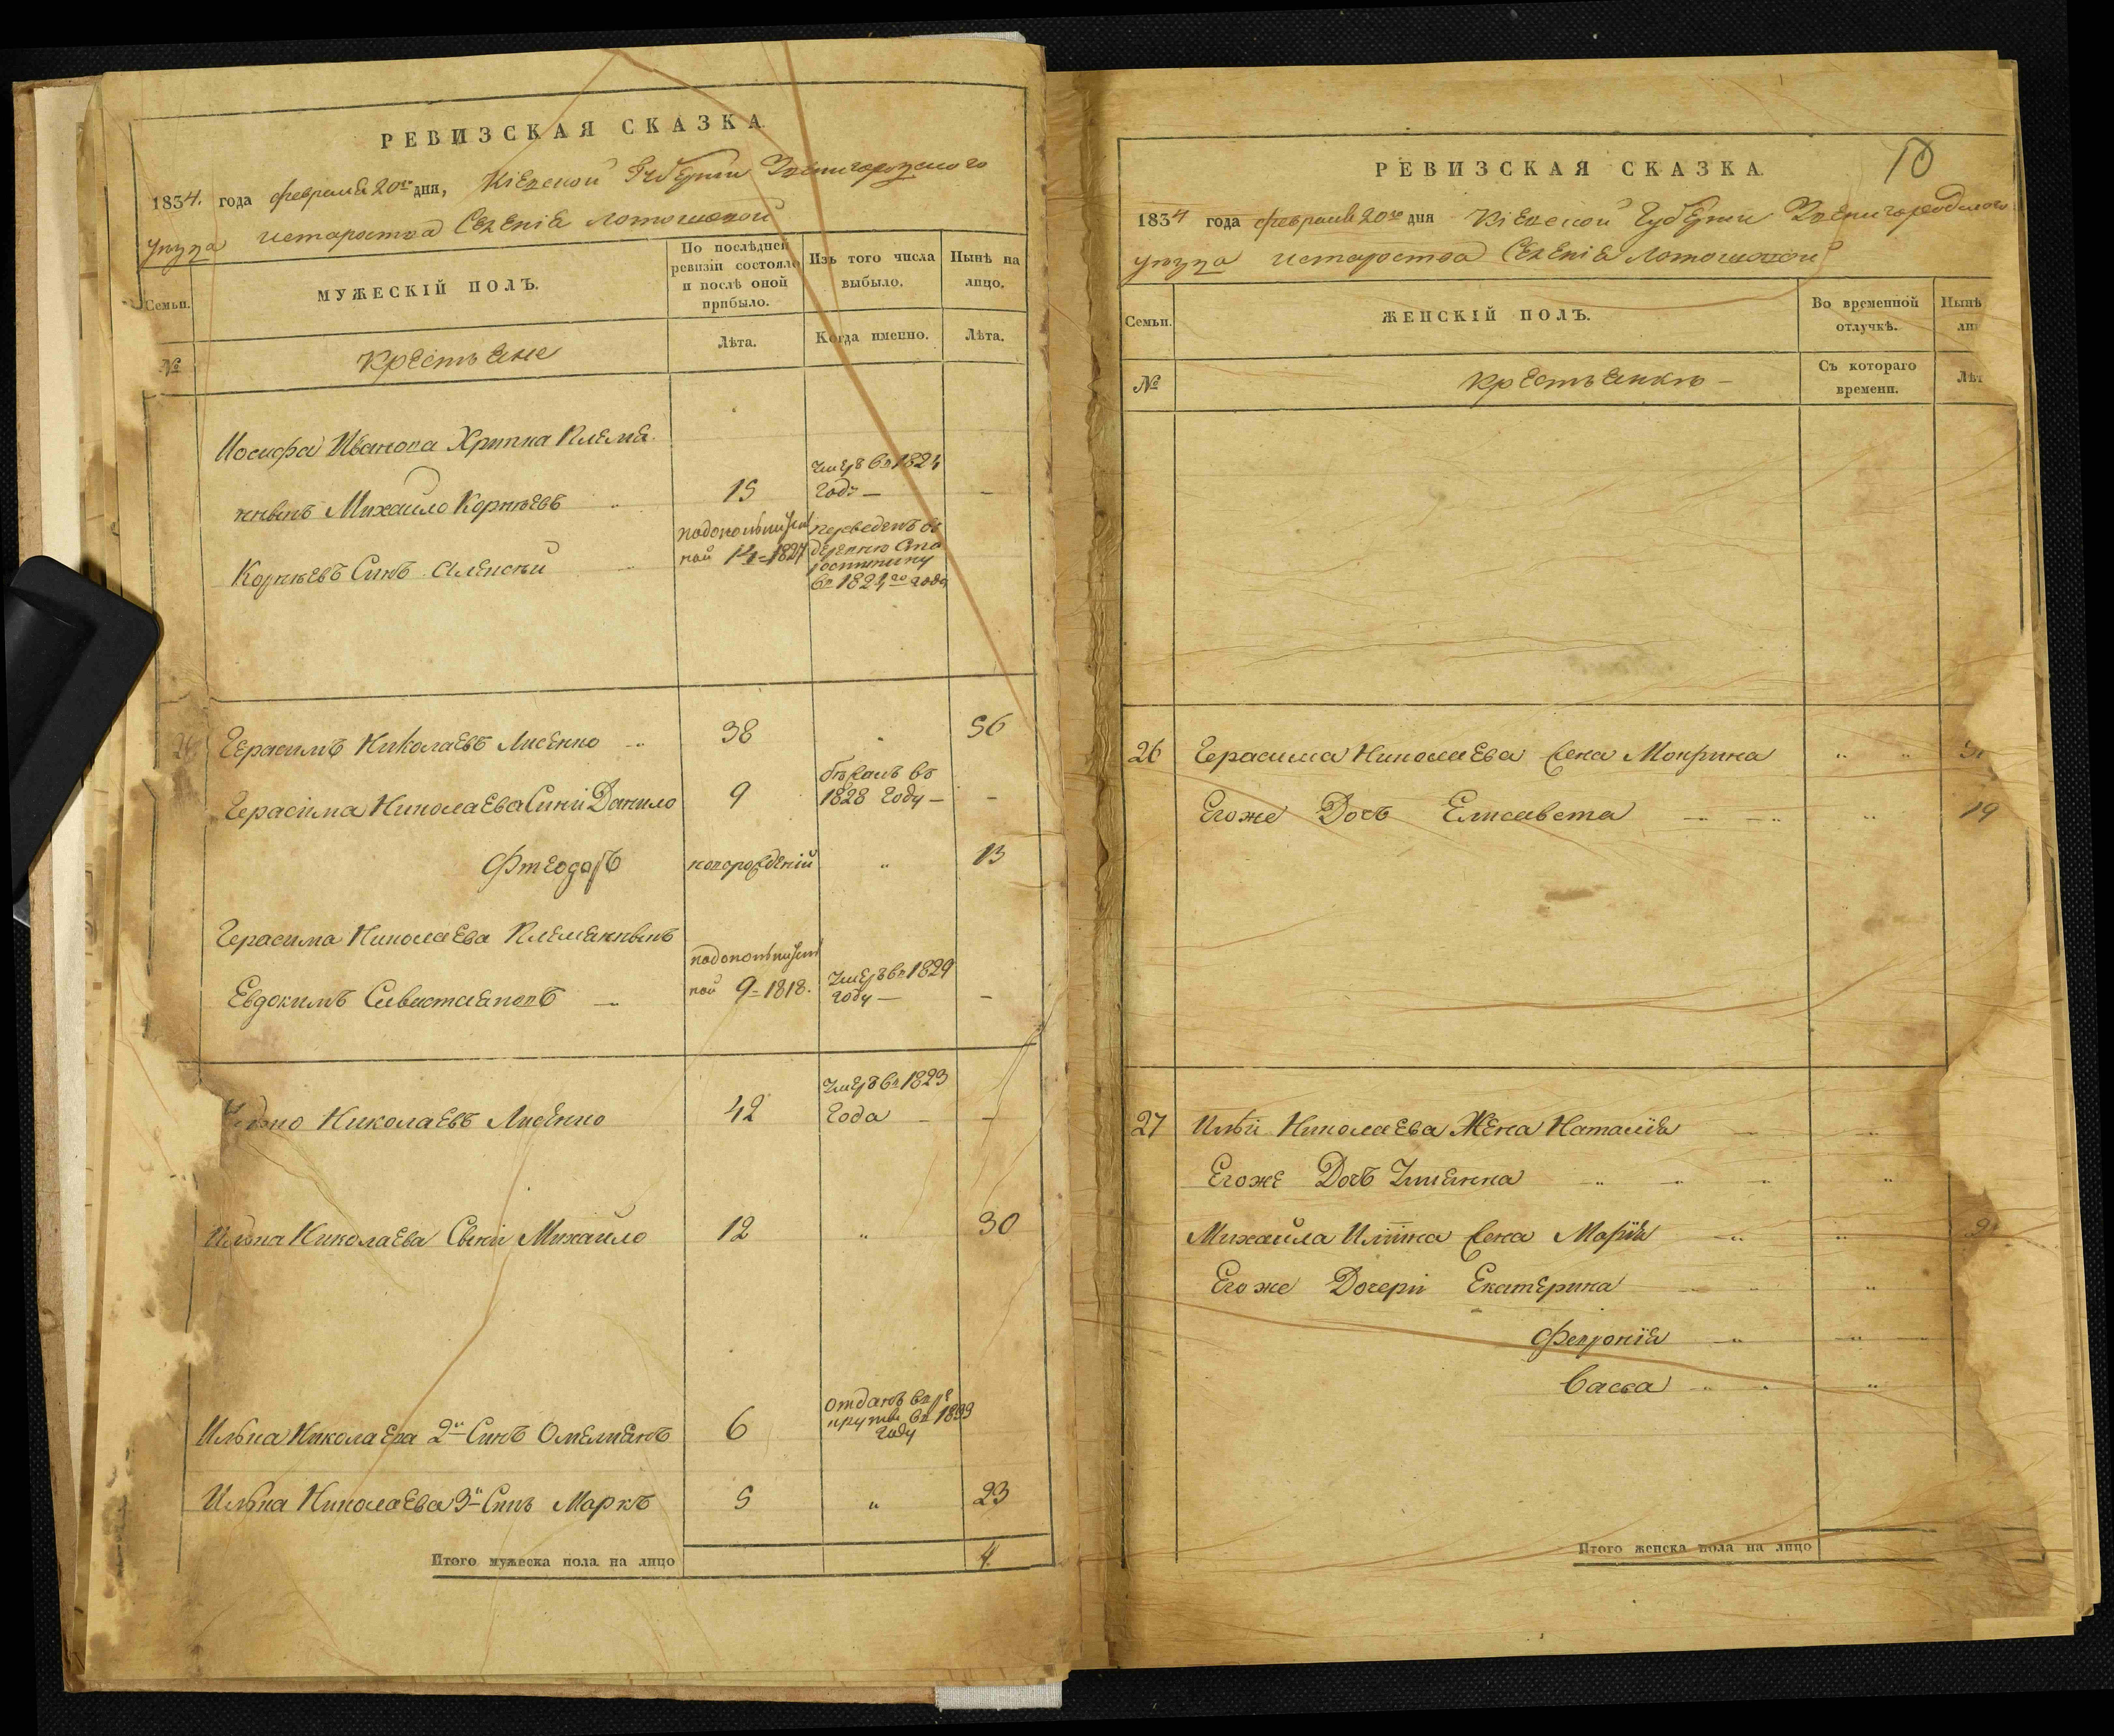 РЕВИЗСКАЯ СКАЗКА.
1834. года февраля 20го дня, Кіевской Губерніи Звенигородского
уезда истароства Селенія Лотошовой
Семьи.
МУЖЕСКІЙ ПОЛЪ.
По послѣдней ревизіи состояло и послѣ оной прибыло.
Изъ того числа выбыло.
Нынѣ на лицо.
№
Крестьяне
Лѣта.
Когда именно.
Лѣта.
Иосифа Иванова Хрипка Племя
нныкъ Михайло Корнѣевъ 15 умеръ въ 1824 году — —
Корнѣевъ Синъ Алексѣй 1827 переведенъ въ деревню
Герасимъ Николаевъ Лисенко 38 " 56
Герасима Николаева Сини Данило 9 бѣжалъ въ 1828 году — —
Фтеодоръ новорожденій " 13
Герасима Николаева Племянныкъ
Евдокимъ 9-1818. умеръ въ 1829 году — —
Николаевъ Лисенко 42 умеръ въ 1823 Года —
Илька Николаева Сыни Михайло 12 " 30
Илька Николаева 2й Синъ Омелиянъ 6 отданъ въ рекруты въ 1833 году
Илька Николаева 3й Синъ Маркъ 5 " 23
Итого мужеска пола на лицо 4.
10
РЕВИЗСКАЯ СКАЗКА.
1834 года февраля 20го дня Кіевской Губерніи Звенигородского
уезда истароства Селенія Лотошовой
Семьи.
ЖЕНСКІЙ ПОЛЪ.
Во временной отлучкѣ.
Нынѣ
№
Крестьянкы —
Съ котораго времени.
Лѣт
26 Герасима Николаева жена Мокрина " "
Егоже Дочь Елисавета " 19
27 Илькѝ Николаева Жена Наталія
Егоже Дочъ Улиянна
Михайла жена Марія
Егоже Дочери Екатерина
Февронія
Васса
Итого женска пола на лицо